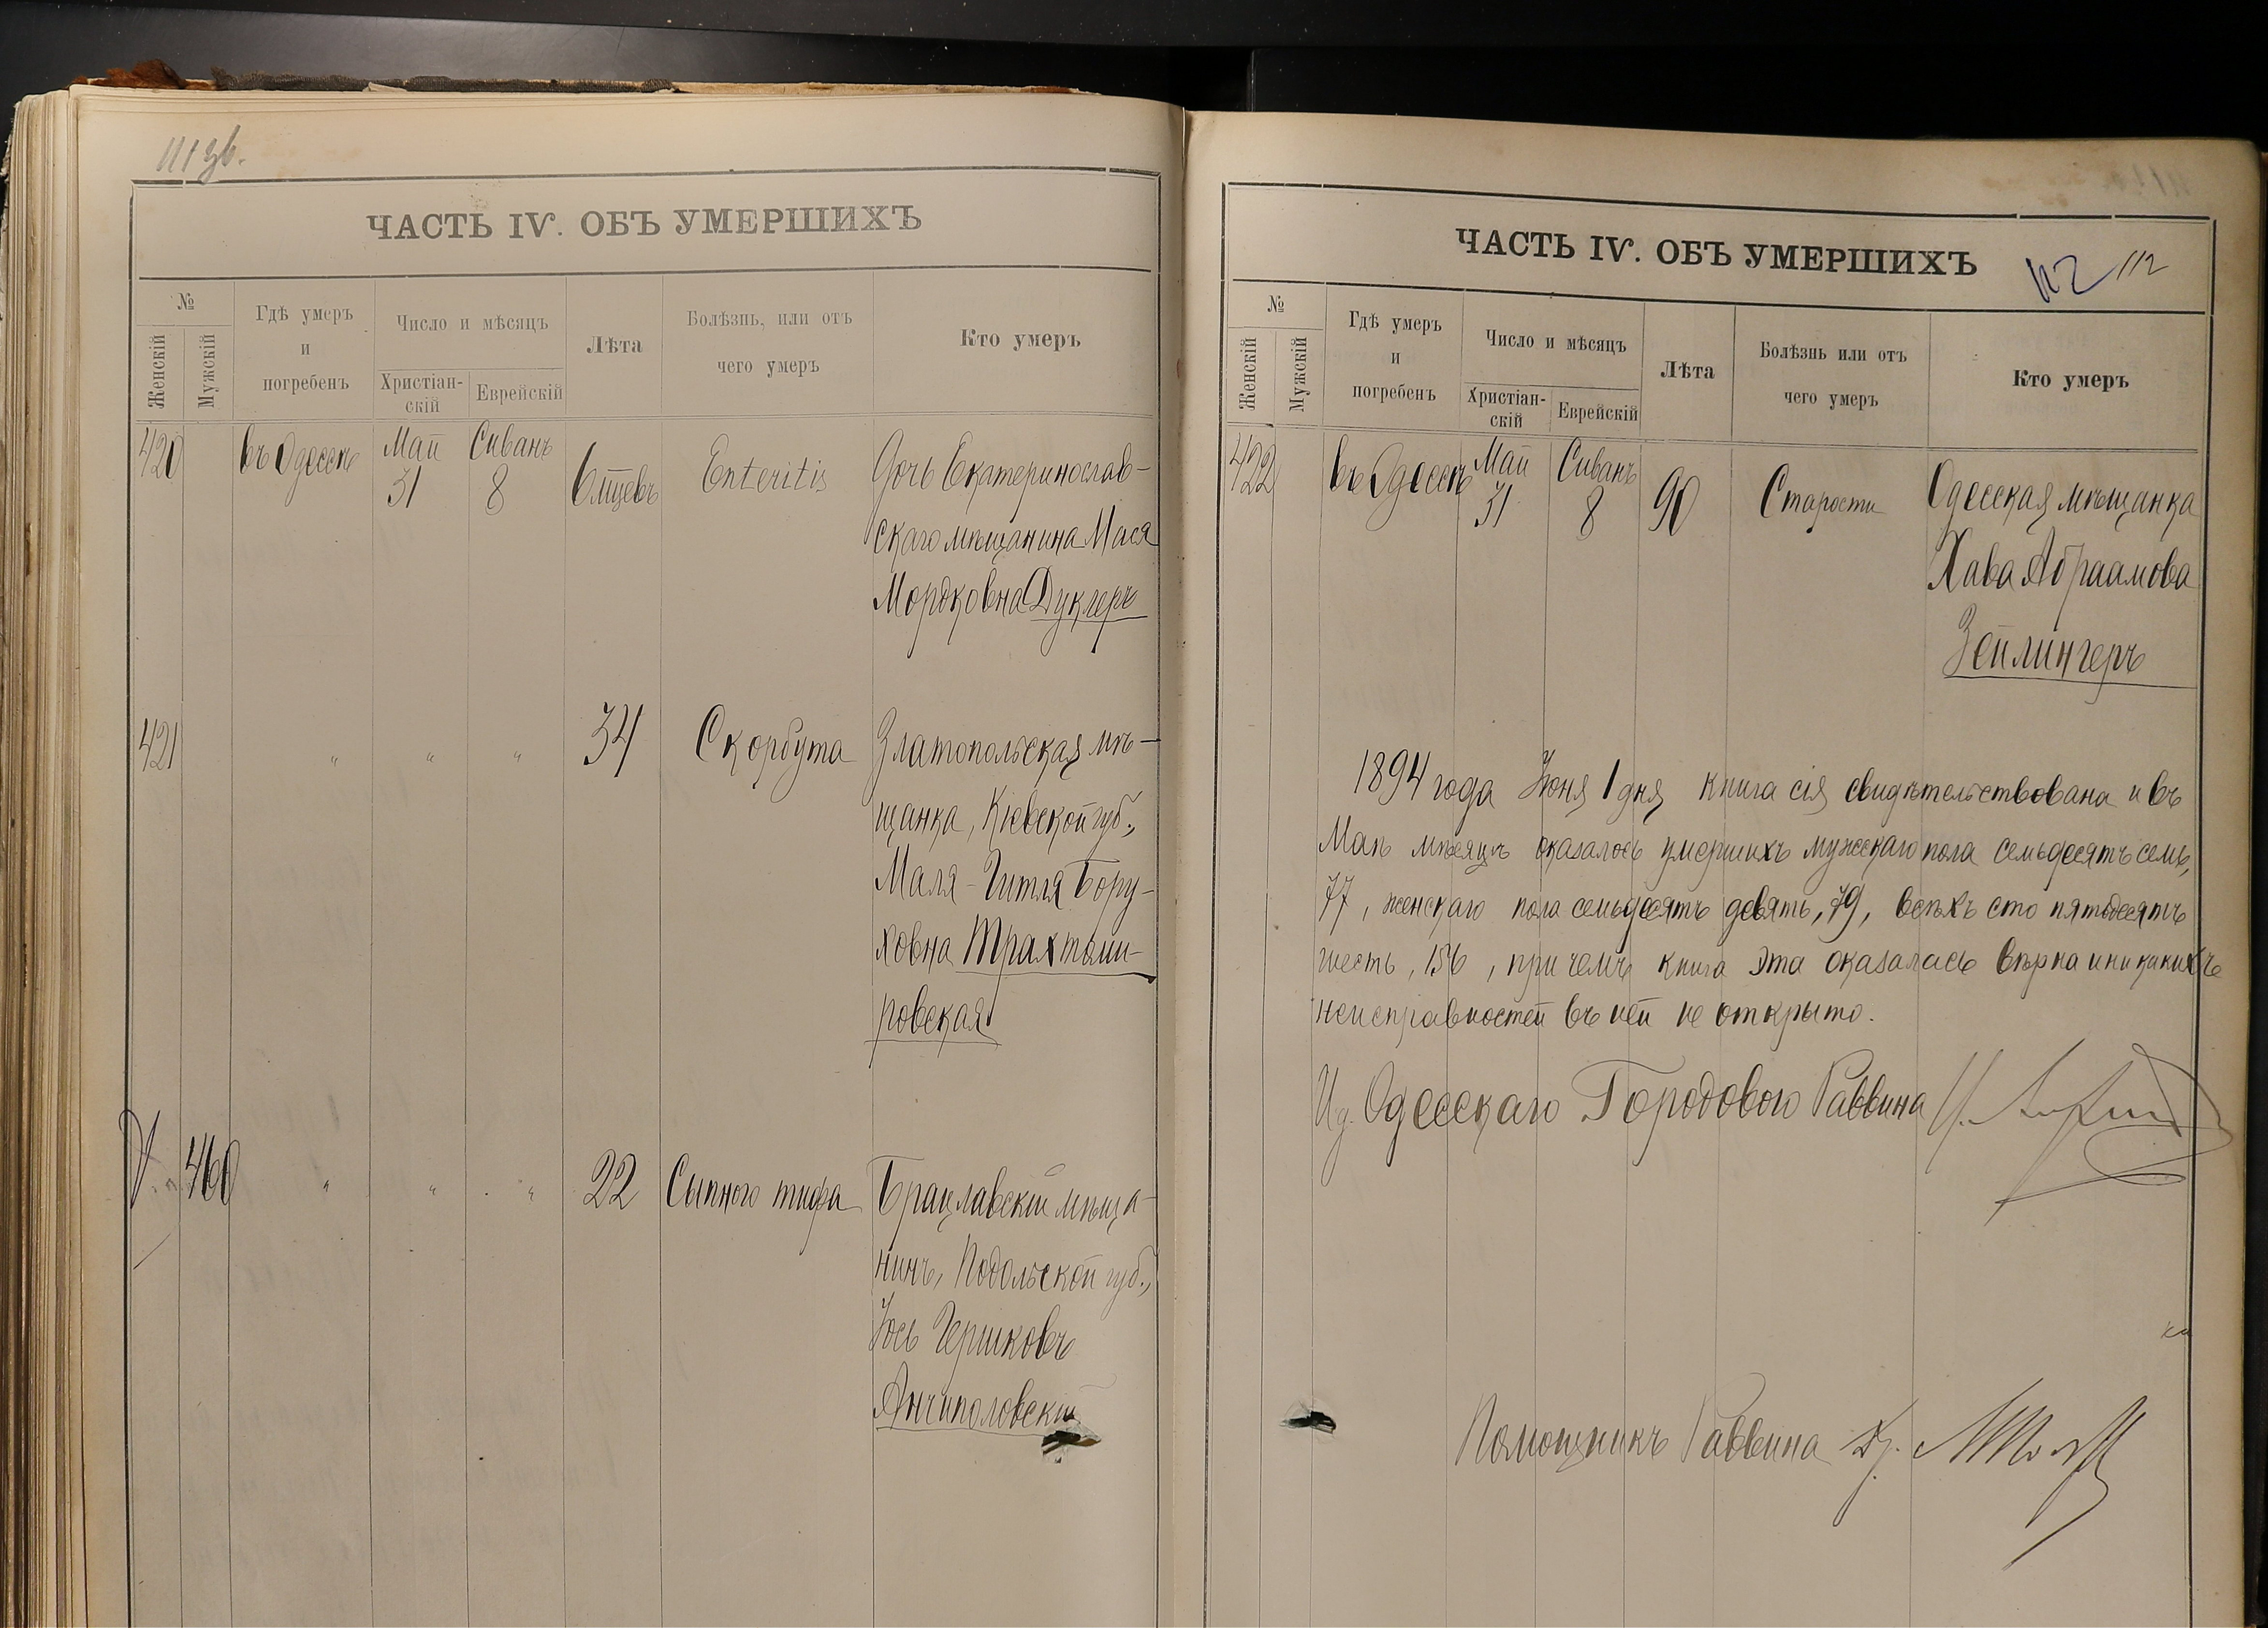 111 зв.
ЧАСТЬ IV. ОБЪ УМЕРШИХЪ
№
Женскій
Мужскій
Гдѣ умеръ
и
погребенъ
Число и мѣсяцъ
Христіан-
скій
Еврейскій
Лѣта
Болѣзнь, или отъ
чего умеръ
Кто умеръ
420 въ Одессѣ Май 31 Сиванъ 8 6 мцевъ Enteritis Дочь Екатеринослав-
скаго мѣщанина Мася
Мордковна Дукгеръ
421 " " " 34 Скорбута Златопольская мѣ-
щанка, Кіевской губ.,
Маля-Гитля Бору-
ховна Трахтоми-
ровская
460 " " " 22 Сыпного тифа Брацлавскій мѣща-
нинъ, Подольской губ.,
Іось Гершковъ
Анчиполовскій
ЧАСТЬ IV. ОБЪ УМЕРШИХЪ
112 112
№
Женскій
Мужскій
Гдѣ умеръ
и
погребенъ
Число и мѣсяцъ
Христіан-
скій
Еврейскій
Лѣта
Болѣзнь или отъ
чего умеръ
Кто умеръ
422 въ Одессѣ Май 31 Сиванъ 8 90 Старости Одесская мѣщанка
Хава Абраамова
Зейлингеръ
1894 года Іюня 1 дня книга сія свидѣтельствована и въ
Маѣ мѣсяцѣ оказалось умершихъ мужескаго пола семьдесятъ семь,
77, женскаго пола семьдесятъ девять, 79, всѣхъ сто пятьдесятъ
шесть, 156, при чемъ книга эта оказалась вѣрна и никакихъ
неисправностей въ ней не открыто.
И.д. Одесскаго Городового Раввина
Помощникъ Раввина Др.